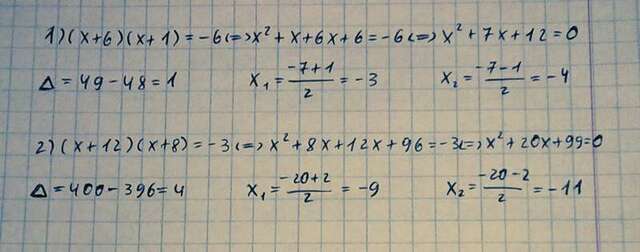 1) (x+6)(x+1)=-6<=>x²+x+6x+6=-6<=>x²+7x+12=0
Δ=49-48=1 x₁=(-7+1)/2=-3 x₂=(-7-1)/2=-4
2) (x+12)(x+8)=-3<=>x²+8x+12x+96=-3<=>x²+20x+99=0
Δ=400-396=4 x₁=(-20+2)/2=-9 x₂=(-20-2)/2=-11